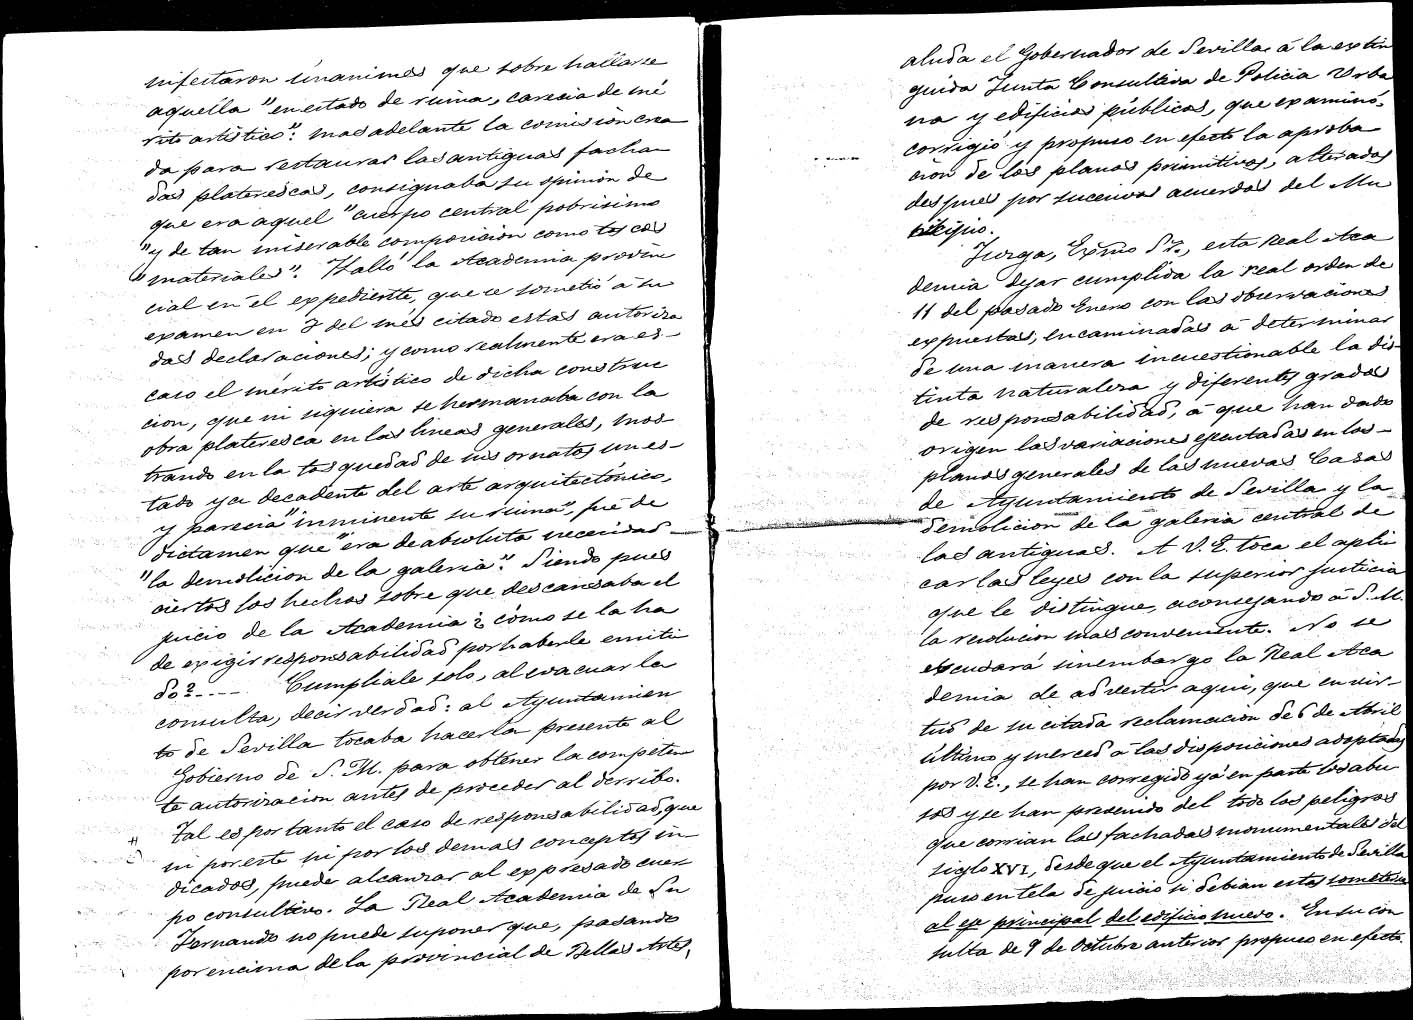 nifestaron únanimes que sobre hallarse
aquella "en estado de ruina, carecia de mé
rito artistico": mas adelante la comision crea
da para restaurar las antiguas facha
das platerescas, consignaba su opinion de
que era aquel "cuerpo central pobrisimo
"y de tan miserable composicion como toscos
"materiales". Halló la Academia provin
cial en el expediente, que se sometió á su
examen en 7 del més citado estas autoriza
das declaraciones; y como realmente era es-
caso el mérito artístico de dicha construc
cion, que ni siquiera se hermanaba con la
obra plateresca en las lineas generales, mos-
trando en la tosquedad de sus ornatos un es-
tado ya decadente del arte arquitectónico,
y parecia "inminente su ruina", fué de
dictamen que "era de absoluta necesidad
"la demolicion de la galeria". Siendo pues
ciertos los hechos sobre que descansaba el
juicio de la Academia ¿cómo se la ha
de exigir responsabilidad por haberle emiti
do?---- Cumpliale solo, al evacuar la
consulta, decir verdad: al Ayuntamien
to de Sevilla tocaba hacerla presente al
Gobierno de S. M. para obtener la competen
te autorizacion antes de proceder al derribo.
Tal es por tanto el caso de responsabilidad, que
ni por este ni por los demas conceptos in-
dicados, puede alcanzar al expresado cuer
po consultivo. La Real Academia de Sn
Fernando no puede suponer que, pasando
por encima de la provincial de Bellas Artes,
aluda el Gobernador de Sevilla á la extin
guida Junta Consultiva de Policia Urba
na y edificios públicos, que examinó,
corrigió y propuso en efecto la aproba
cion de los planos primitivos, alterados
despues por sucesivos acuerdos del Mu
nicipio.
Juzga, Exmo Sr., esta Real Aca
demia dejar cumplida la real orden de
11 del pasado Enero con las observaciones
expuestas, encaminadas á determinar
de una manera incuestionable la dis-
tinta naturaleza y diferentes grados
de responsabilidad, á que han dado
origen las variaciones ejecutadas en los-
planos generales de las nuevas Casas
de Ayuntamiento de Sevilla y la
demolicion de la galeria central de
las antiguas. A V. E. toca el apli
car las leyes con la superior justicia
que le distingue, aconsejando á S. M.
la resolucion mas conveniente. No se
excusará sin embargo la Real Aca
demia de advertir aqui, que en vir-
tud de su citada reclamacion de 6 de Abril
último y merced á las disposiciones adoptadas
por V. E., se han corregido yá en parte los abu
sos y se han prevenido del todo los peligros
que corrian las fachadas monumentales del
siglo XVI, desde que el Ayuntamiento de Sevilla
puso en tela de juicio si debian estas someterse
al eje principal del edificio nuevo. En su con
sulta de 9 de Octubre anterior propuso en efecto